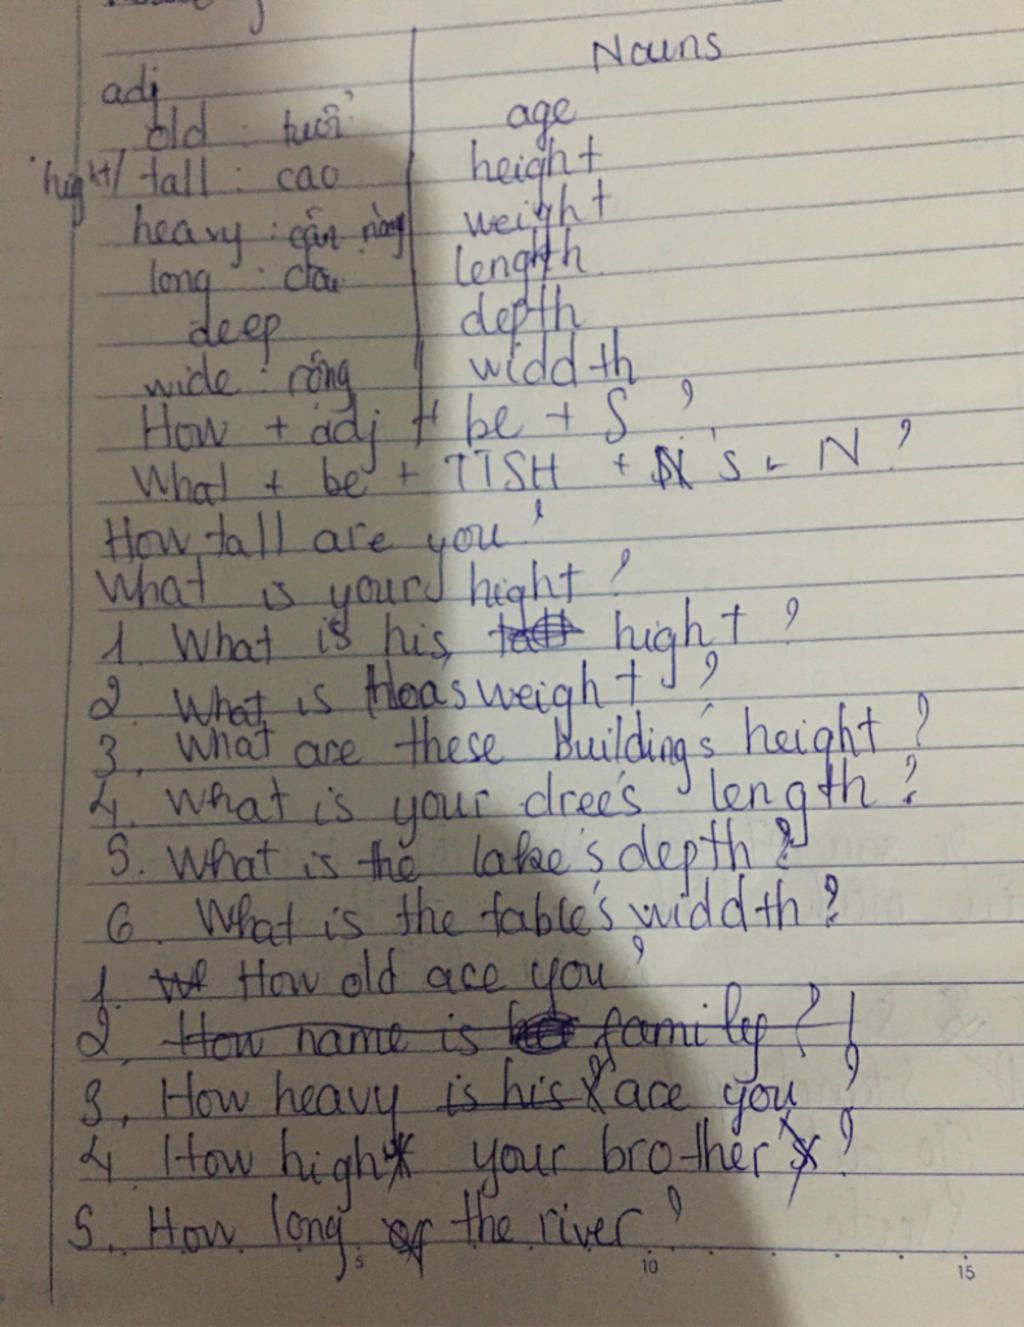 Nouns
adj
old : tuổi age
hight/ tall : cao height
heavy : cân nặng weight
long : dài length
deep depth
wide : rộng widdth
How + adj + be + S ?
What + be + TTSH + N's + N ?
How tall are you ?
What is your hight ?
1. What is his hight ?
2. What is Hoa's weight ?
3. What are these building's height ?
4. What is your dree's length ?
5. What is the lake's depth ?
6. What is the table's widdth ?
1. How old are you ?
2. How name is family ?
3. How heavy is his are you ?
4. How high your brother ?
5. How long the river ?
5 10 15